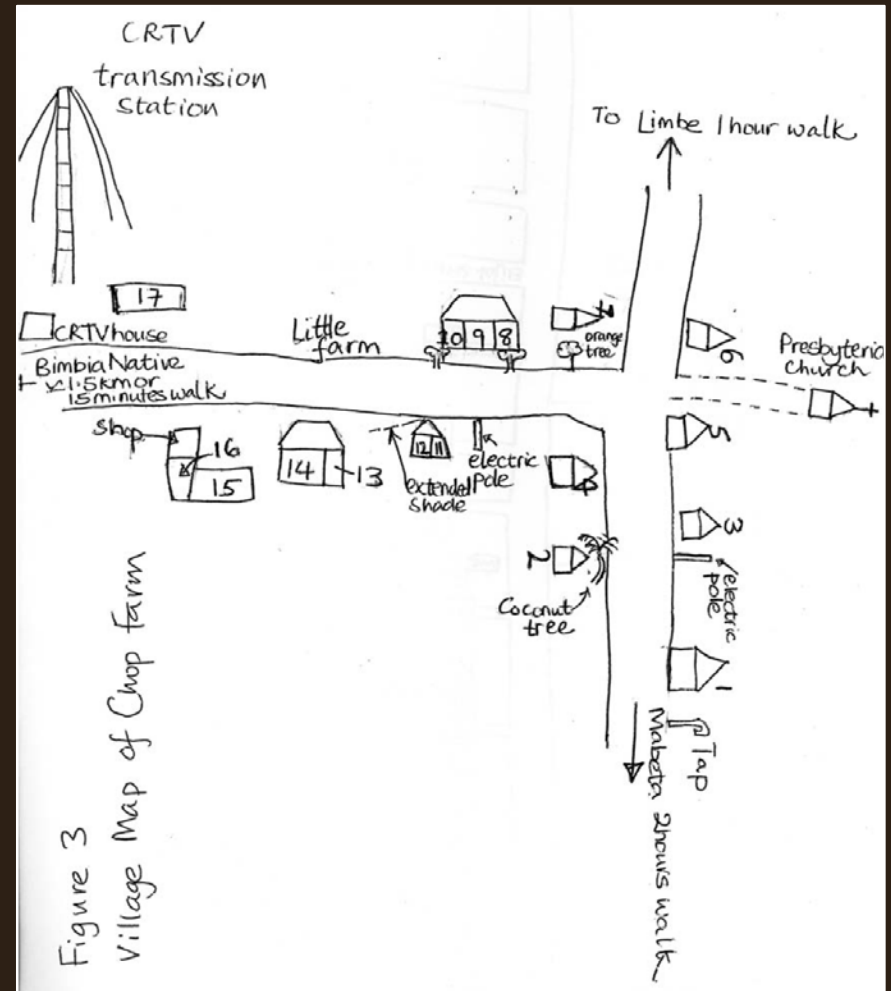 CRTV
transmission
Station
To Limbe 1 hour walk
17
CRTV house
Little
farm
10 9 8
7
orange
tree
6
Presbyteria
Church
Bimbia Native
1.5km or
15 minutes walk
Shop
16
15
14
13
12 11
extended
Shade
electric
pole
4
5
3
electric
pole
2
Coconut
tree
1
Tap
Mabeta 2hours walk
Figure 3
Village Map of Chop Farm